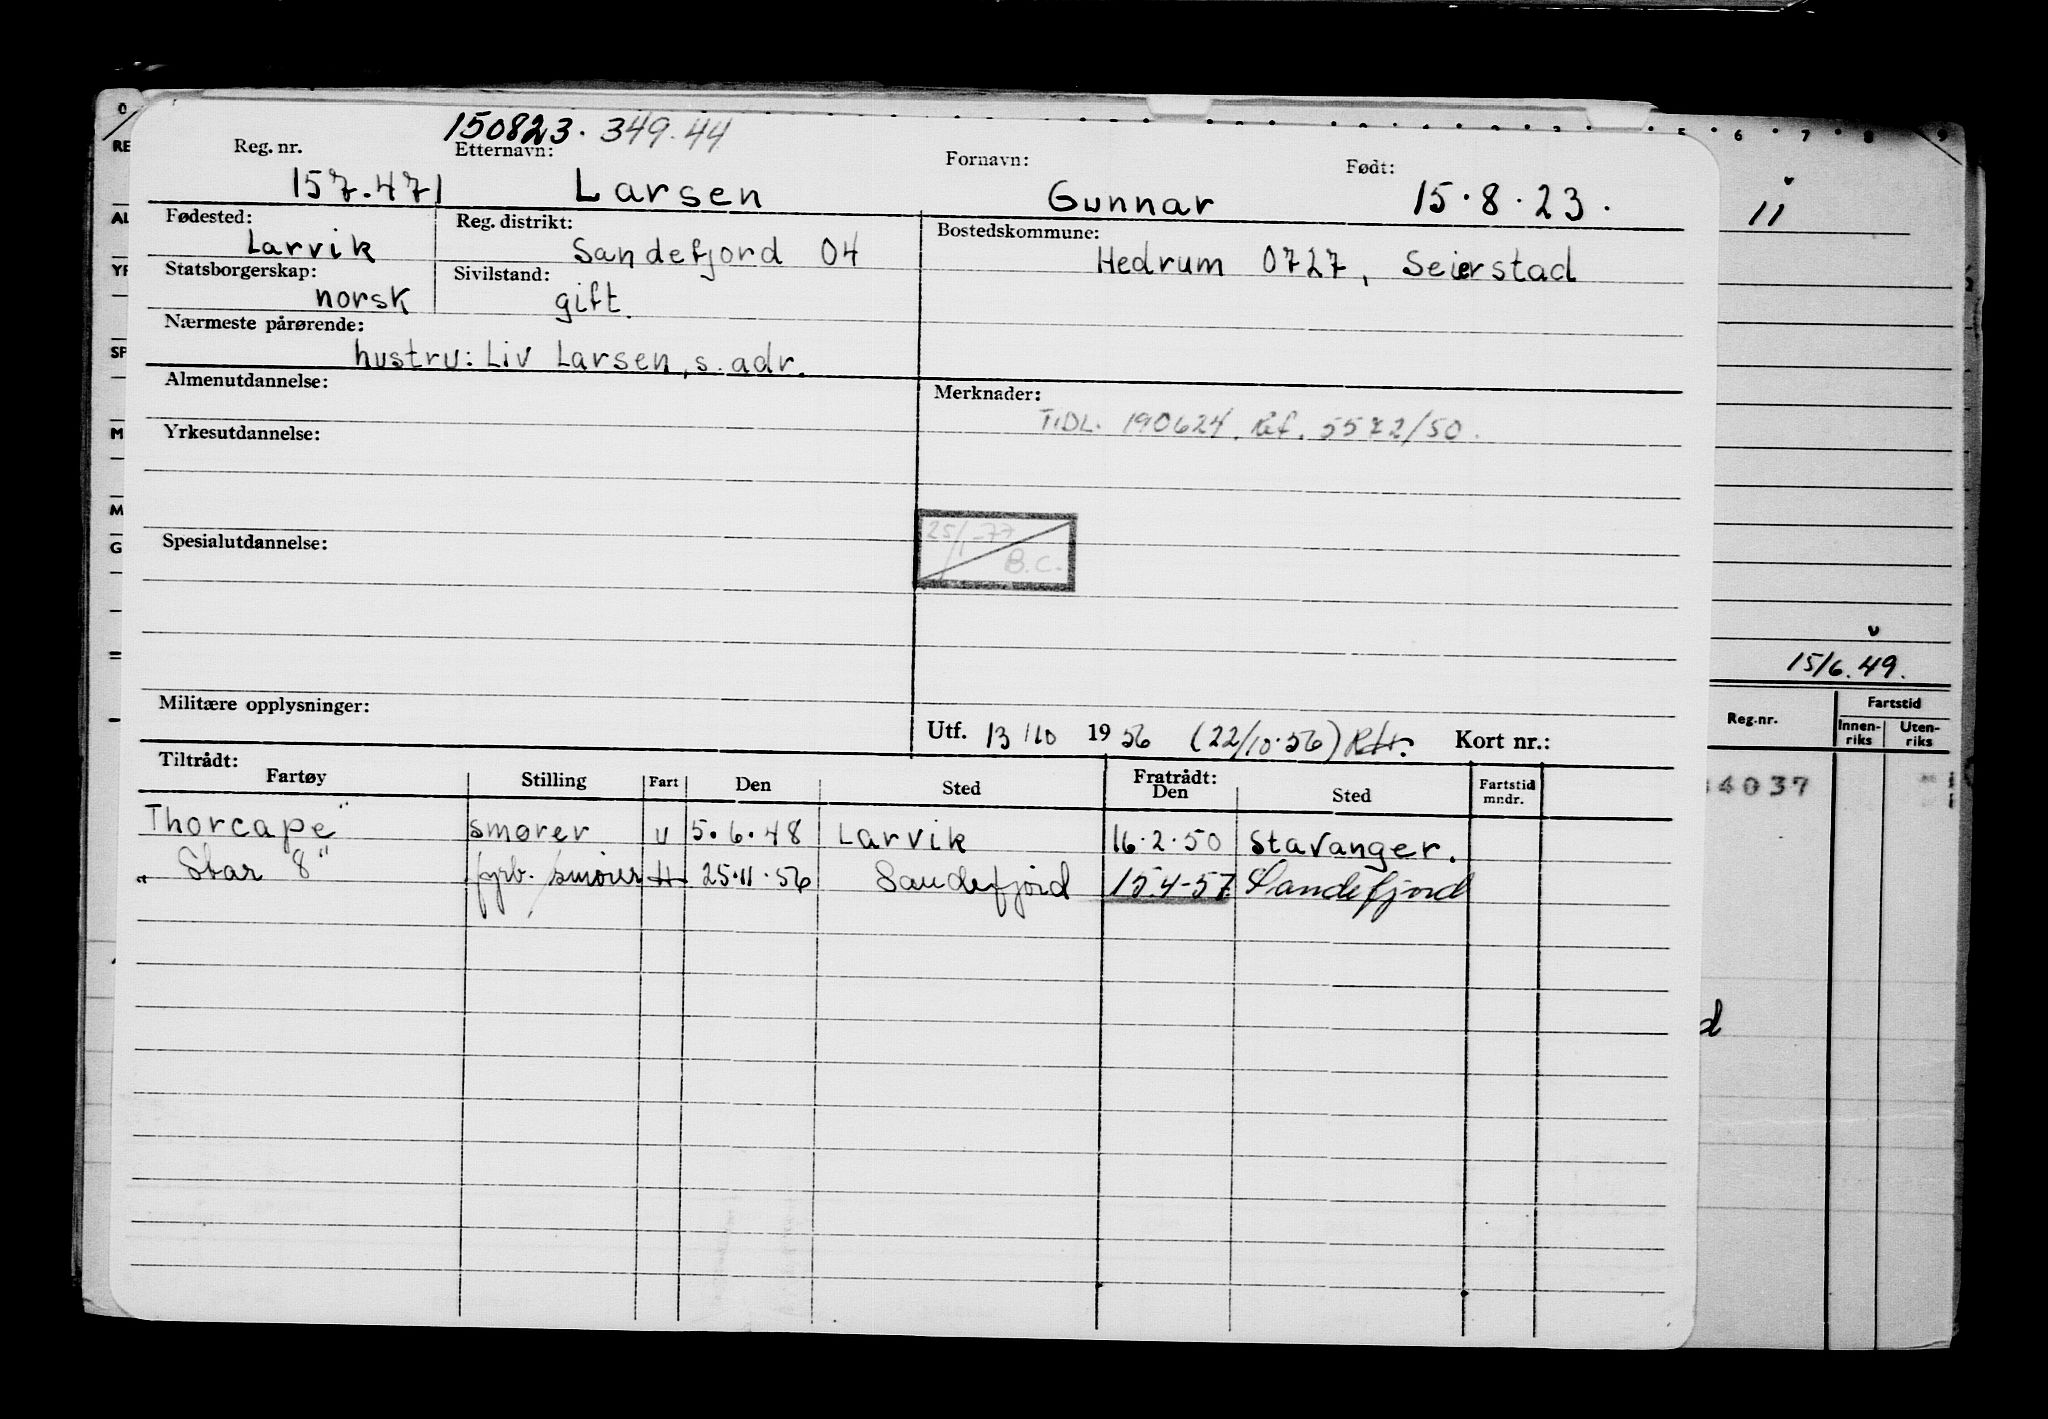 150823. 349.44
Reg. nr. Etternavn: Fornavn: Født:
157.471 Larsen Gunnar 15.8.23.
Fødested: Reg. distrikt: Bostedskommune:
Larvik Sandefjord 04 Hedrum 0727, Seierstad
Statsborgerskap: Sivilstand:
norsk gift.
Nærmeste pårørende:
hustru: Liv Larsen, s. adr.
Almenutdannelse: Merknader:
TIDL. 190624. Ref. 5572/50.
Yrkesutdannelse:
25/1-77
B.C.
Spesialutdannelse:
Militære opplysninger:
Utf. 13/10 1956 (22/10.56) Kort nr.:
Tiltrådt: Fratrådt:
Fartøy Stilling Fart Den Sted Den Sted Fartstid mndr.
Thorcape" smører U 5.6.48 Larvik 16.2.50 Stavanger.
"Star 8" fyrb./smører H 25.11.56 Sandefjord 15-4-57 Sandefjord
0 5 6 7 8 9
RE
AL
YR
SP
M
M
G
11
15/6.49.
Reg.nr. Fartstid
Innenriks Utenriks
4037
d